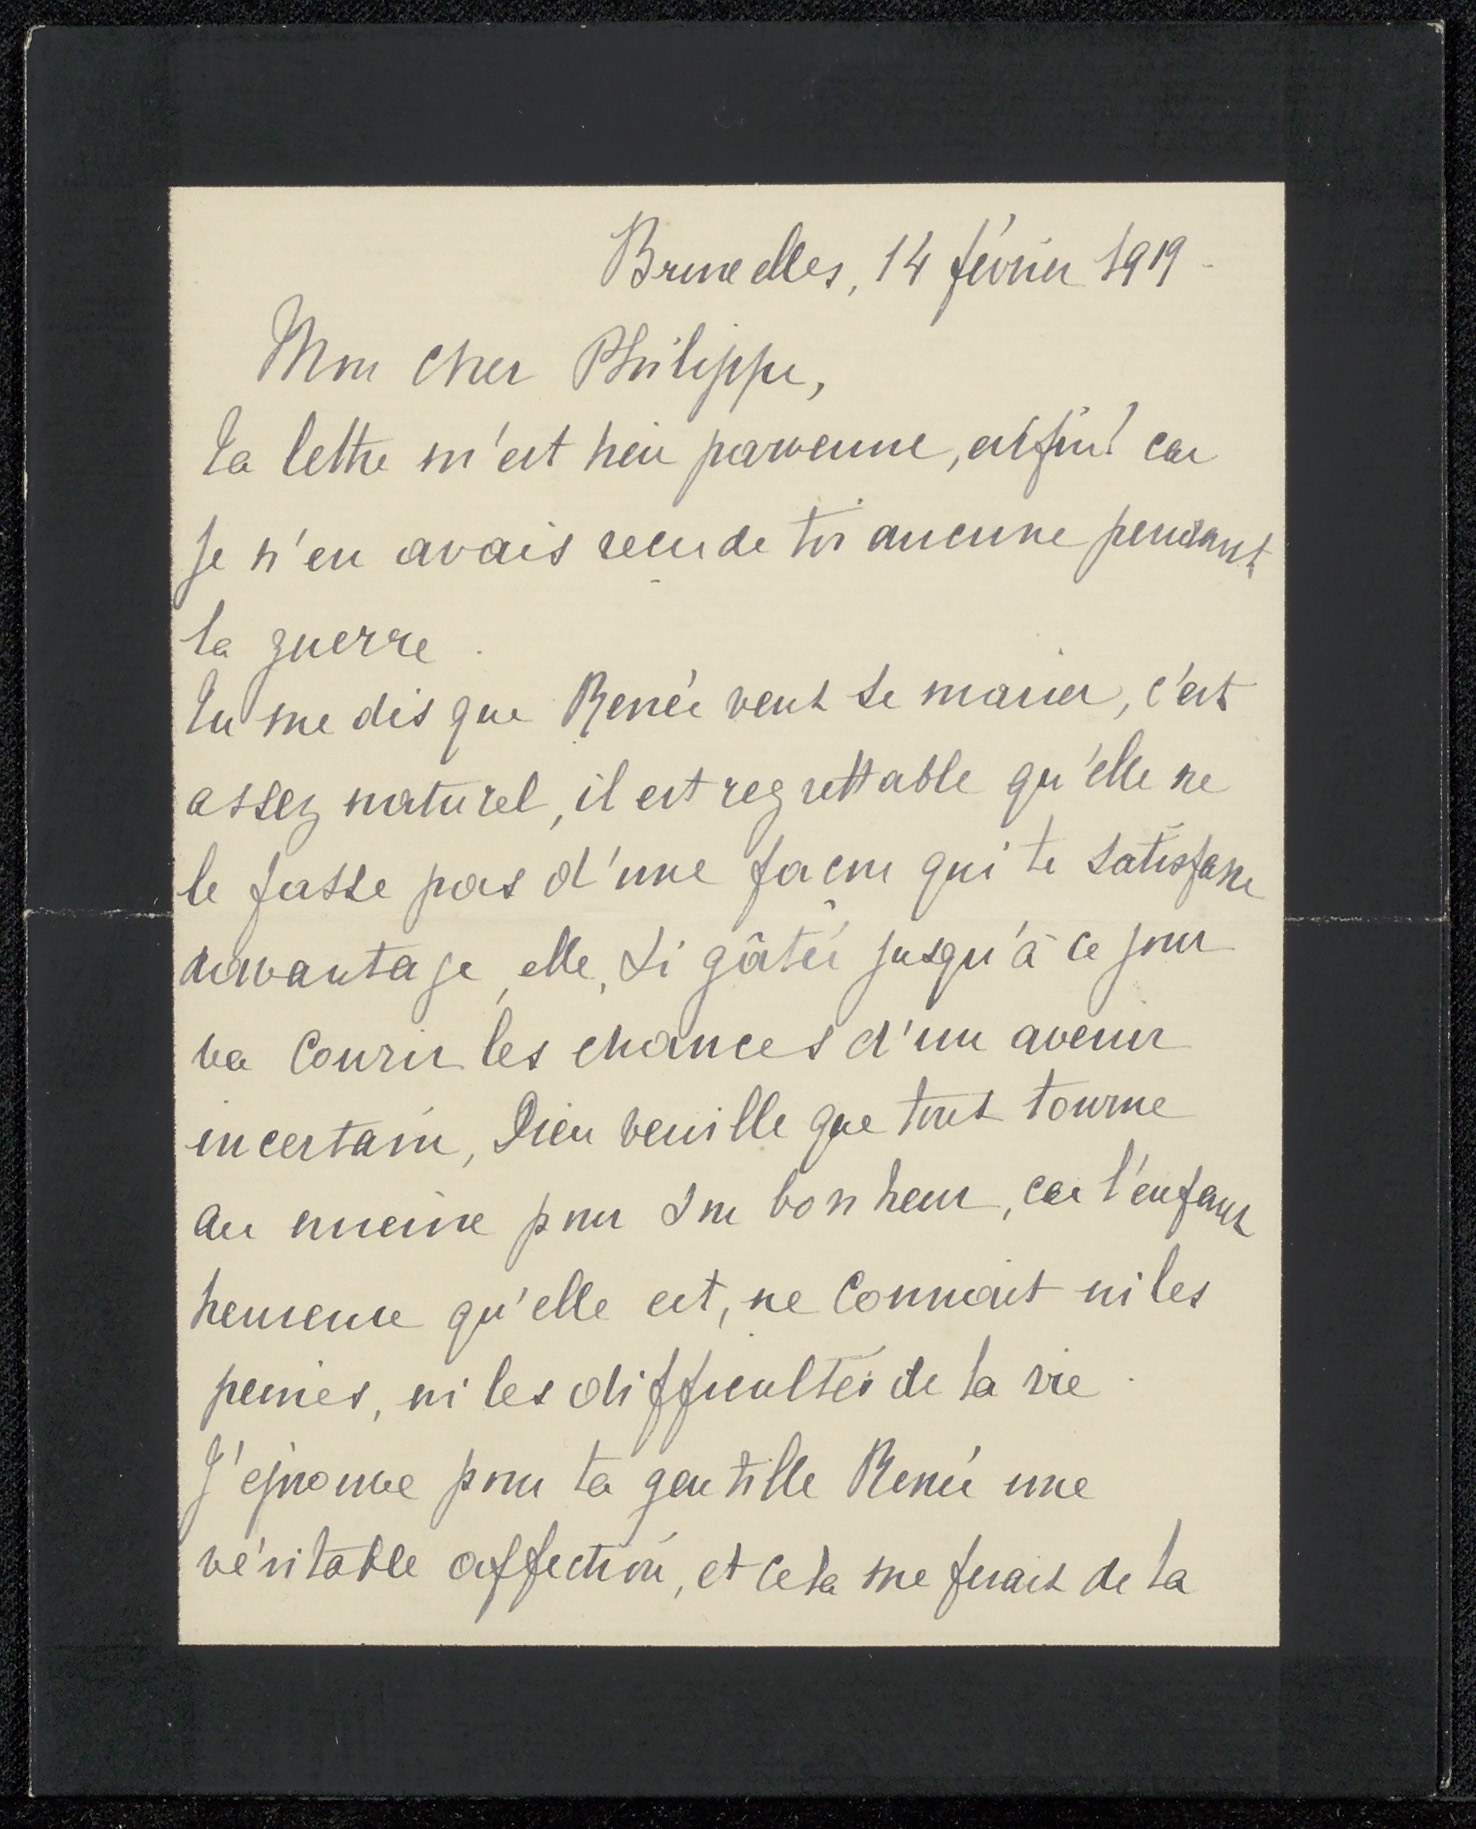 Bruxelles, 14 février 1919.
Mon cher Philippe,
Ta lettre m'est bien parvenue, enfin! car
je n'en avais reçu de toi aucune pendant
la guerre.
Tu me dis que Renée veut se marier, c'est
assez naturel, il est regrettable qu'elle ne
le fasse pas d'une façon qui te satisfasse
davantage, elle, si gâtée jusqu'à ce jour
va courir les chances d'un avenir
incertain, Dieu veuille que tout tourne
au mieux pour son bonheur, car l'enfant
heureuse qu'elle est, ne connait ni les
peines, ni les difficultés de la vie.
J'éprouve pour ta gentille Renée une
véritable affection, et cela me ferait de la